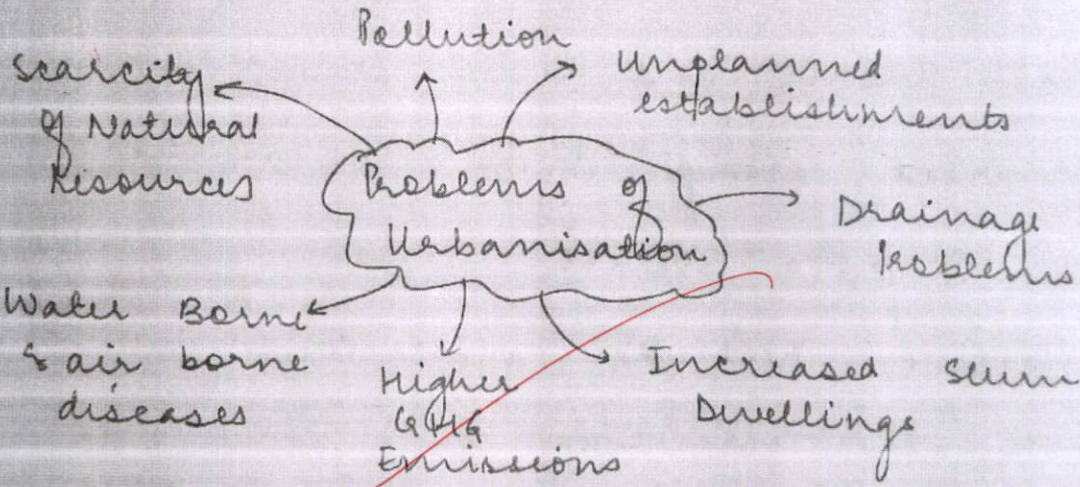 Pollution
Scarcity
of Natural
Resources
Unplanned
establishments
Problems of
Urbanisation
Drainage
Problems
Water Borne
& air borne
diseases
Higher
GHG
Emissions
Increased Slum
Dwellings